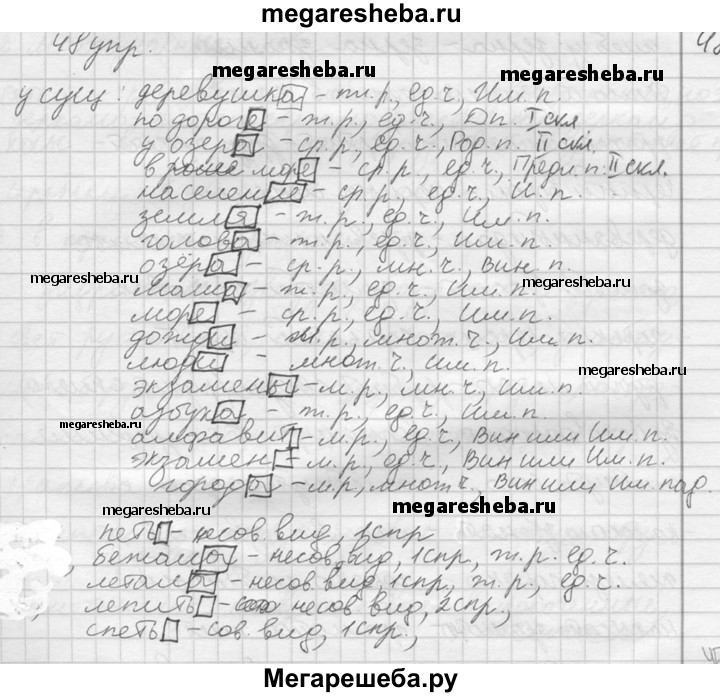 megaresheba.ru
48 упр.
megaresheba.ru
megaresheba.ru
у сущ: деревушка – ж.р., ед.ч., Им.п.
по дорога – ж.р., ед.ч., Дп. I скл
у озера – ср.р., ед.ч., Род.п. II скл.
в море – ср.р., ед.ч., Предл.п. II скл.
население – ср.р., ед.ч., И.п.
земля – ж.р., ед.ч., Им.п.
голова – ж.р., ед.ч., Им.п.
озёра – ср.р., мн.ч., Вин.п.
megaresheba.ru
– ж.р., ед.ч., Им.п.
море – ср.р., ед.ч., Им.п.
megaresheba.ru
дожди – м.р., множ.ч., Им.п.
люди – множ.ч., им.п.
megaresheba.ru
экзамены – м.р., мн.ч., им.п.
азбука – ж.р., ед.ч., Им.п.
megaresheba.ru
алфавит – м.р., ед.ч., Вин или Им.п.
экзамен – м.р., ед.ч., Вин или Им.п.
города – м.р., множ.ч., Вин или Им.пад.
megaresheba.ru
megaresheba.ru
петь – несов.вид, 1спр
бежала – несов.вид, 1спр., ж.р. ед.ч.
летала – несов.вид, 1спр., ж.р., ед.ч.
лепить – несов.вид, 2спр.,
спеть – сов.вид, 1спр.,
Мегарешеба.ру